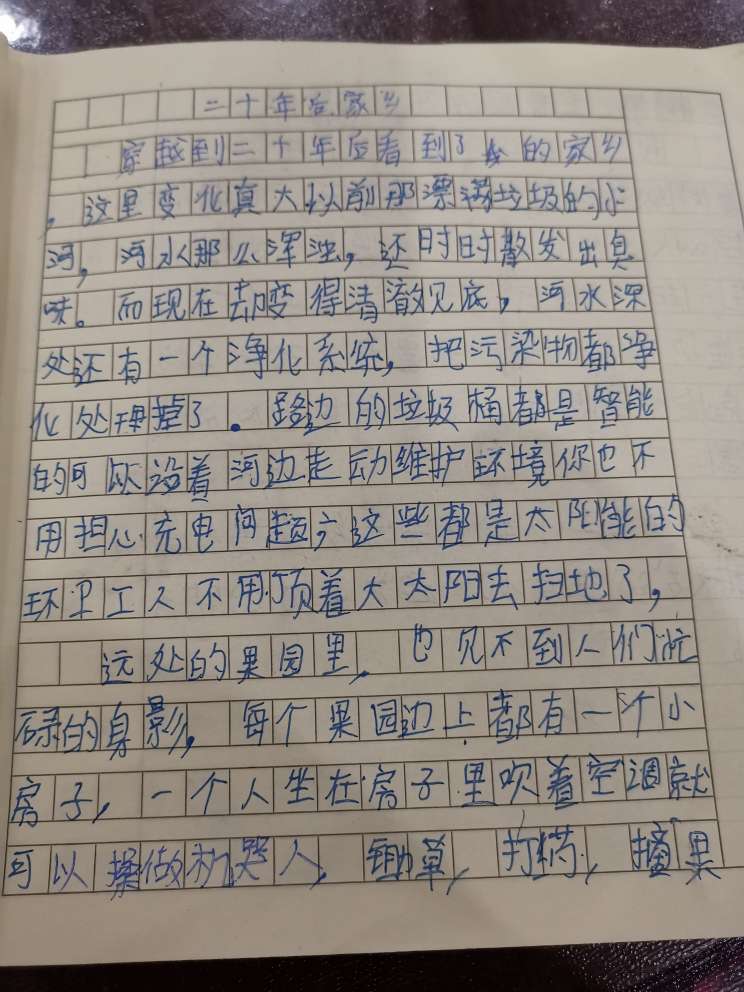 二十年后家乡
穿越到二十年后看到了我的家乡
，这里变化真大以前那漂满垃圾的小
河，河水那么浑浊，还时时散发出臭
味。而现在却变得清澈见底，河水深
处还有一个净化系统，把污染物都净
化处理掉了。路边的垃圾桶都是智能
的可以沿着河边走动维护环境你也不
用担心充电问题，这些都是太阳能的
环卫工人不用顶着大太阳去扫地了，
远处的果园里，也见不到人们忙
碌的身影，每个果园边上都有一个小
房子，一个人坐在房子里吹着空调就
可以操做机器人，锄草，打药，摘果